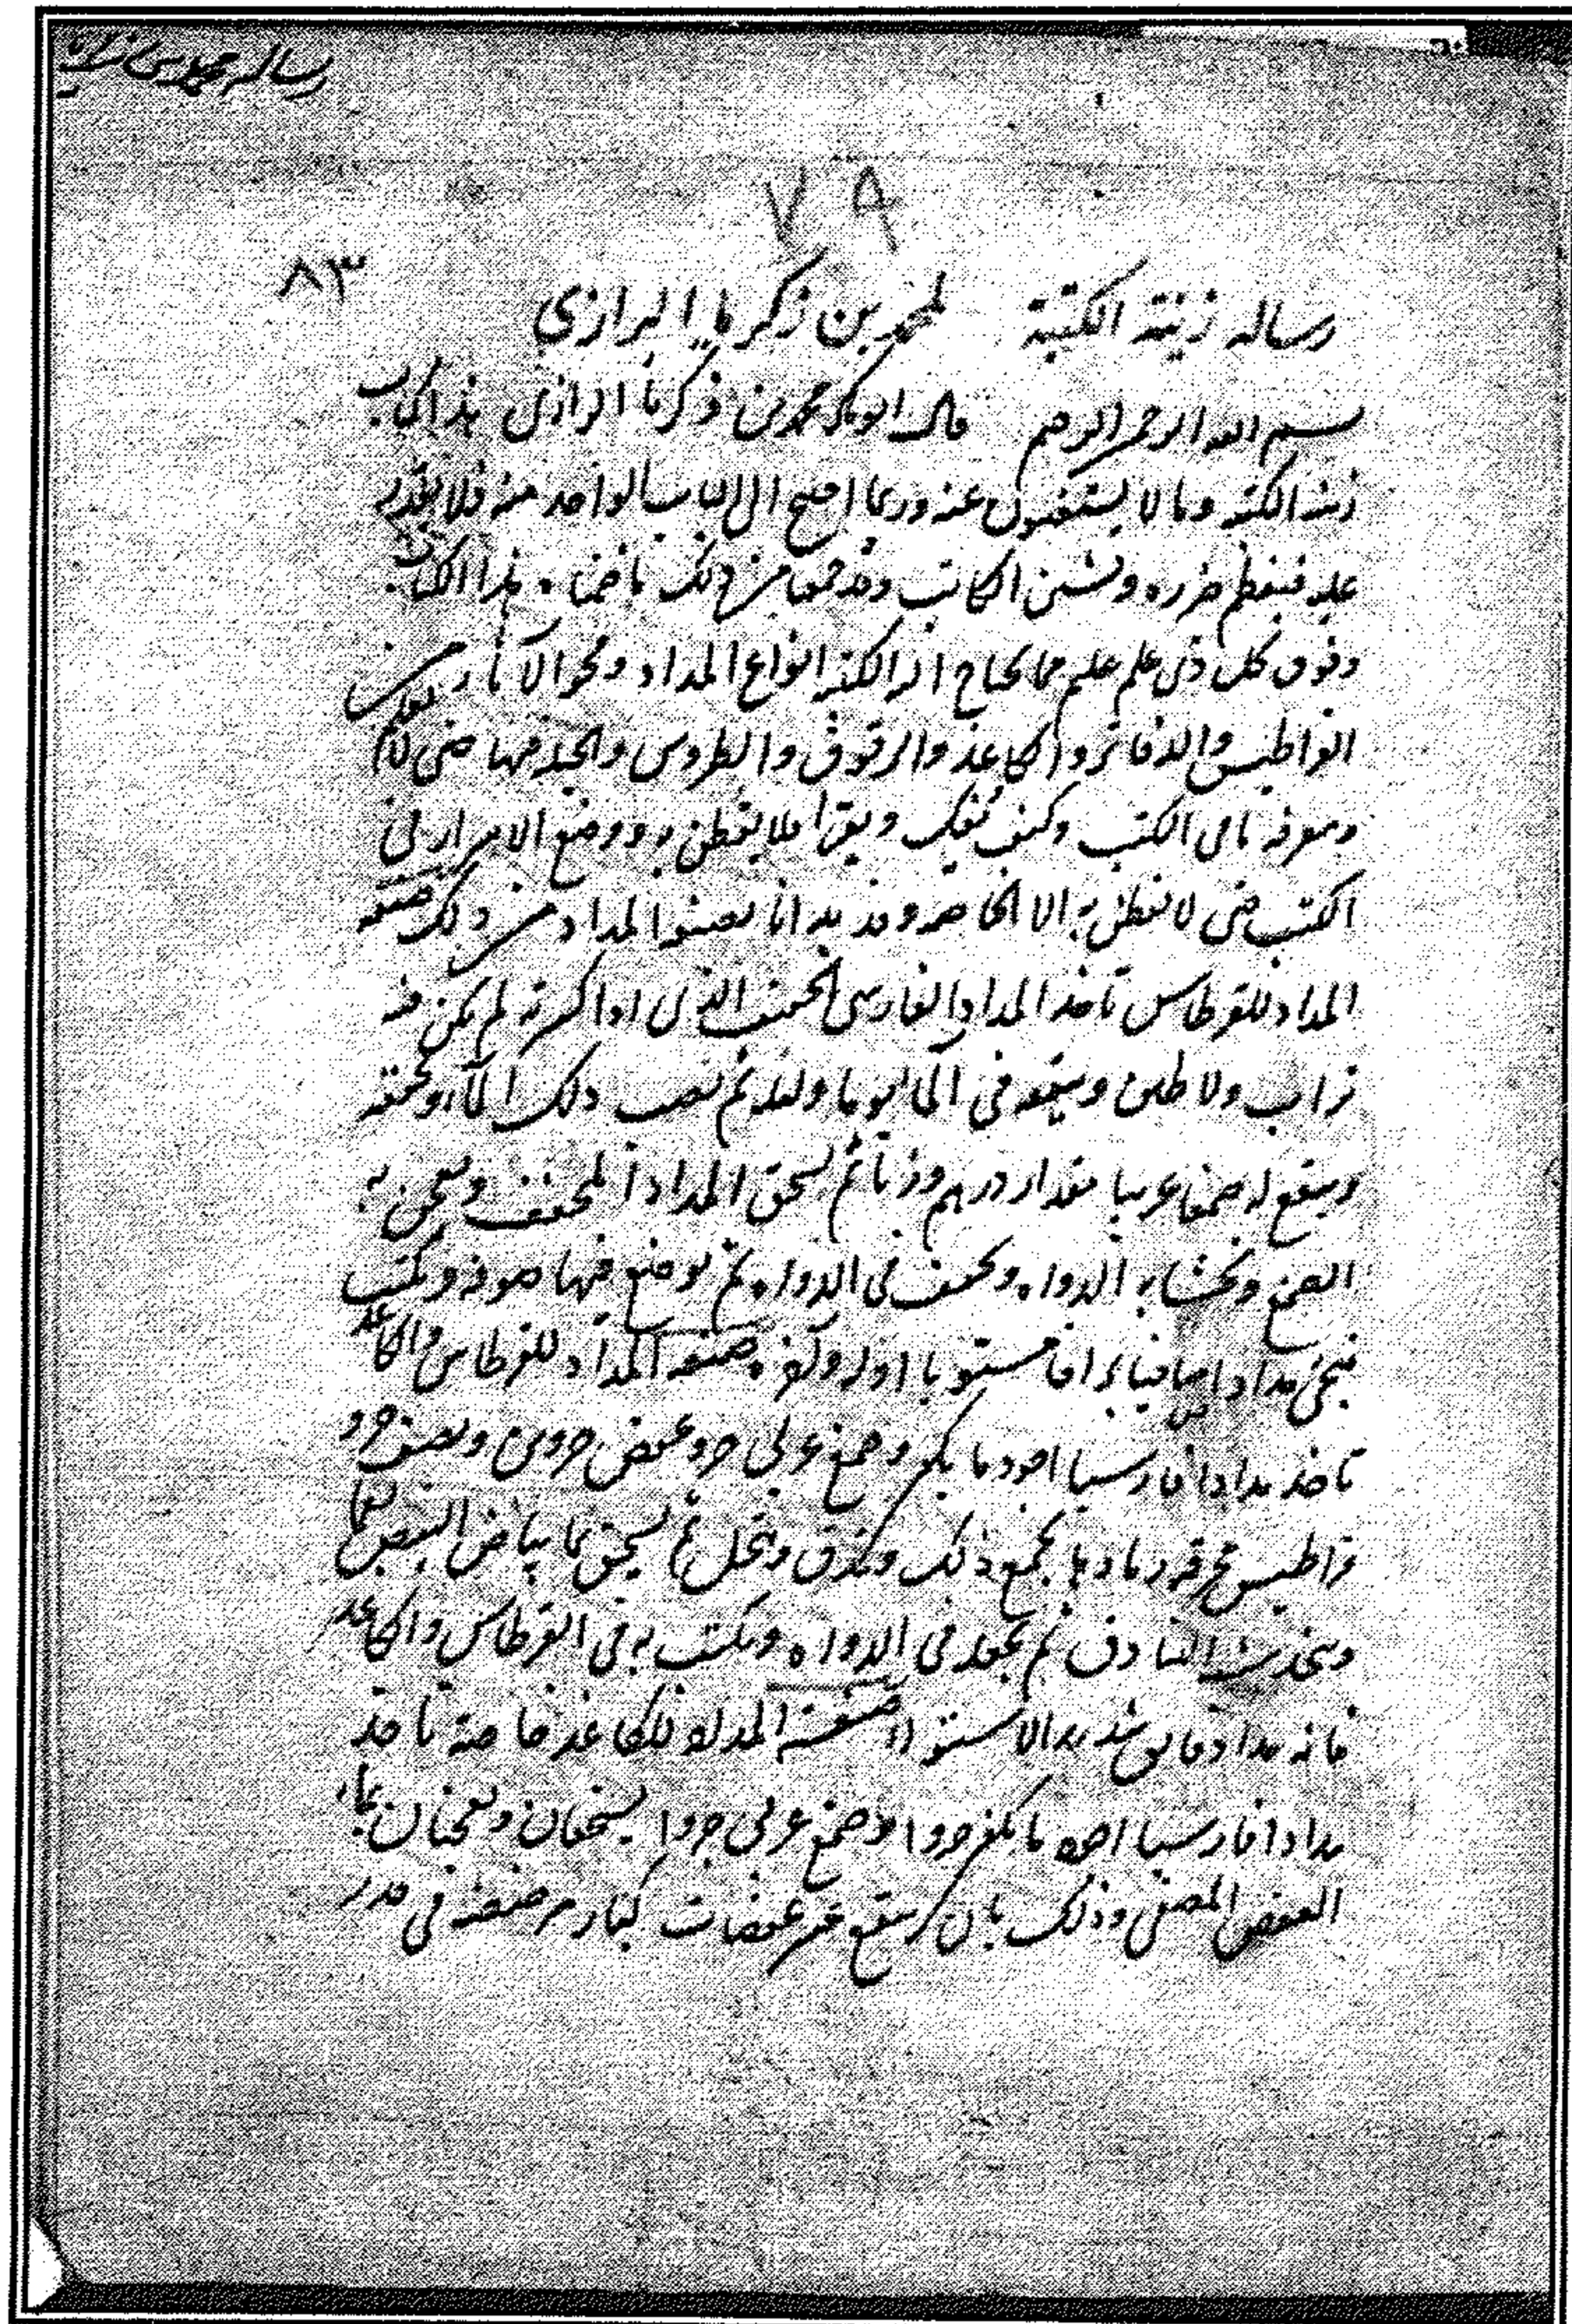 رساله محمد بن زكريا
٧٩
٨٣
رساله زينة الكتبة لمحمد بن زكريا الرازي
بسم الله الرحمن الرحيم قال ابو بكر محمد بن زكريا الرازي هذا كتاب
زينه الكتبه وما لا يستغنون عنه وربما احتيج الى الباب الواحد منه فلا يقدر
عليه فيعظم ضرره ويشين الكاتب وقد جمعنا من ذلك ما ضمناه هذا الكتاب
وفوق كل ذي علم عليم مما يحتاج اليه الكتبه انواع المداد ومحو الآثار من
القراطيس والدفاتر والكاغذ والرقوق والطروس والحيله فيها حتى لا يعلم
ومعرفه ما في الكتب وكيف يفك ويقرا فلا يفطن به ووضع الاسرار في
الكتب حتى لا يفطن به الا الخاصه وقد بدانا بصنعه المداد من ذلك صنعه
المداد للقرطاس تاخذ المداد الفارسي الخفيف الذي اذا كسرته لم يكن فيه
تراب ولا طين وينقعه في الما يوما وليله ثم تصب ذلك الماء وتجففه
وينقع له صمغا عربيا مقدار درهم وزنا ثم يسحق المداد المجفف ويعجن به
الصمغ وتحشا به الدواه ويجفف في الدواه ثم توضع فيها صوفه ويكتب
فيجئ مدادا صافيا براقا مستويا اوله وآخره صنعه المداد للقرطاس والكاغد
تاخذ مدادا فارسيا اجود ما يكون وصمغ عربي جزو عفص جزوين ونصف جزو
قراطيس محرقه رمادها يجمع ذلك ويدق وينخل ثم يسحق بما بياض البيض
ويتخذ شبه البنادق ثم يجعل في الدواه ويكتب به في القرطاس والكاغد
فانه مداد فايق شديد الاستواء صنعة المداد للكاغذ خاصة تاخذ
مدادا فارسيا اجود ما يكون جزوا وصمغ عربي جزوا يسحقان ويعجنان بماء
العفص المصفى وذلك بان ينقع عشر عفصات كبار مرضضه في قدر